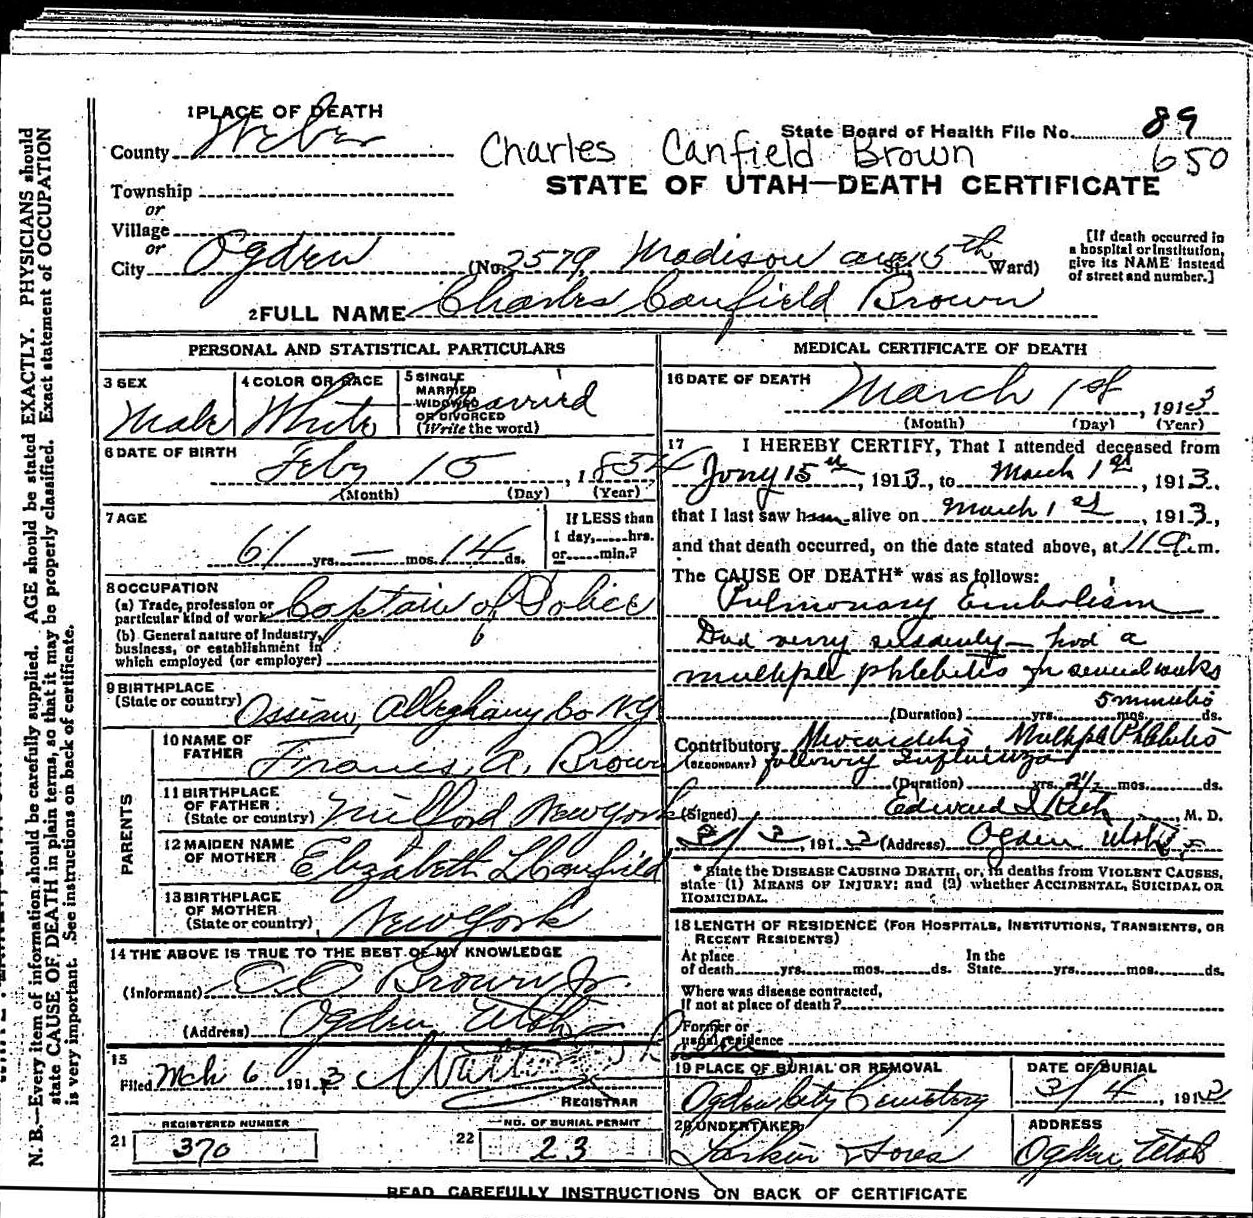 1 PLACE OF DEATH
County Weber
State Board of Health File No. 89
650
Charles Canfield Brown
STATE OF UTAH—DEATH CERTIFICATE
Township
or
Village
or
City Ogden (No. 2579, Madison ave St.; 5th Ward)
[If death occurred in
a hospital or institution,
give its NAME instead
of street and number.]
2 FULL NAME Charles Canfield Brown
PERSONAL AND STATISTICAL PARTICULARS
3 SEX
Male
4 COLOR OR RACE
White
5 SINGLE
MARRIED
WIDOWED
OR DIVORCED
(Write the word)
Married
6 DATE OF BIRTH
Feby 15, 1854
(Month) (Day) (Year)
7 AGE
61 yrs. — mos. 14 ds.
If LESS than
1 day,......hrs.
or......min.?
8 OCCUPATION
(a) Trade, profession or
particular kind of work Captain of Police
(b) General nature of industry,
business, or establishment in
which employed (or employer)
9 BIRTHPLACE
(State or country) Ossian, Alleghany Co N.Y
PARENTS
10 NAME OF
FATHER Francis, A. Brown
11 BIRTHPLACE
OF FATHER
(State or country) Milford New York
12 MAIDEN NAME
OF MOTHER Elizabeth L Canfield
13 BIRTHPLACE
OF MOTHER
(State or country) New York
14 THE ABOVE IS TRUE TO THE BEST OF MY KNOWLEDGE
(Informant) C C Brown Jr.
(Address) Ogden Utah
15
Filed Mch 6 1913
REGISTRAR
REGISTERED NUMBER
21 370
NO. OF BURIAL PERMIT
22 23
MEDICAL CERTIFICATE OF DEATH
16 DATE OF DEATH
March 1st, 1913
(Month) (Day) (Year)
17 I HEREBY CERTIFY, That I attended deceased from
15th, 1913, to March 1st, 1913,
that I last saw him alive on March 1st, 1913,
and that death occurred, on the date stated above, at 11 a.m.
The CAUSE OF DEATH* was as follows:
Pulmonary Embolism
Died very suddenly— had a
multiple phlebitis for several weeks
5 minutes
(Duration) yrs. mos. ds.
Contributory Myocarditis, Multiple Phlebitis
(SECONDARY) following Influenza
(Duration) yrs. 2½ mos. ds.
(Signed) Edward I Rich, M. D.
3/2, 1913 (Address) Ogden Utah
* State the DISEASE CAUSING DEATH, or, in deaths from VIOLENT CAUSES,
state (1) MEANS OF INJURY; and (2) whether ACCIDENTAL, SUICIDAL OR
HOMICIDAL.
18 LENGTH OF RESIDENCE (FOR HOSPITALS, INSTITUTIONS, TRANSIENTS, OR
RECENT RESIDENTS)
At place
of death......yrs......mos......ds.
In the
State......yrs......mos......ds.
Where was disease contracted,
If not at place of death?
Former or
usual residence
19 PLACE OF BURIAL OR REMOVAL
Ogden City Cemetery
DATE OF BURIAL
3/4, 1913
20 UNDERTAKER
Larkin & Sons
ADDRESS
Ogden, Utah
READ CAREFULLY INSTRUCTIONS ON BACK OF CERTIFICATE
N. B.—Every item of information should be carefully supplied. AGE should be stated EXACTLY. PHYSICIANS should
state CAUSE OF DEATH in plain terms, so that it may be properly classified. Exact statement of OCCUPATION
is very important. See instructions on back of certificate.